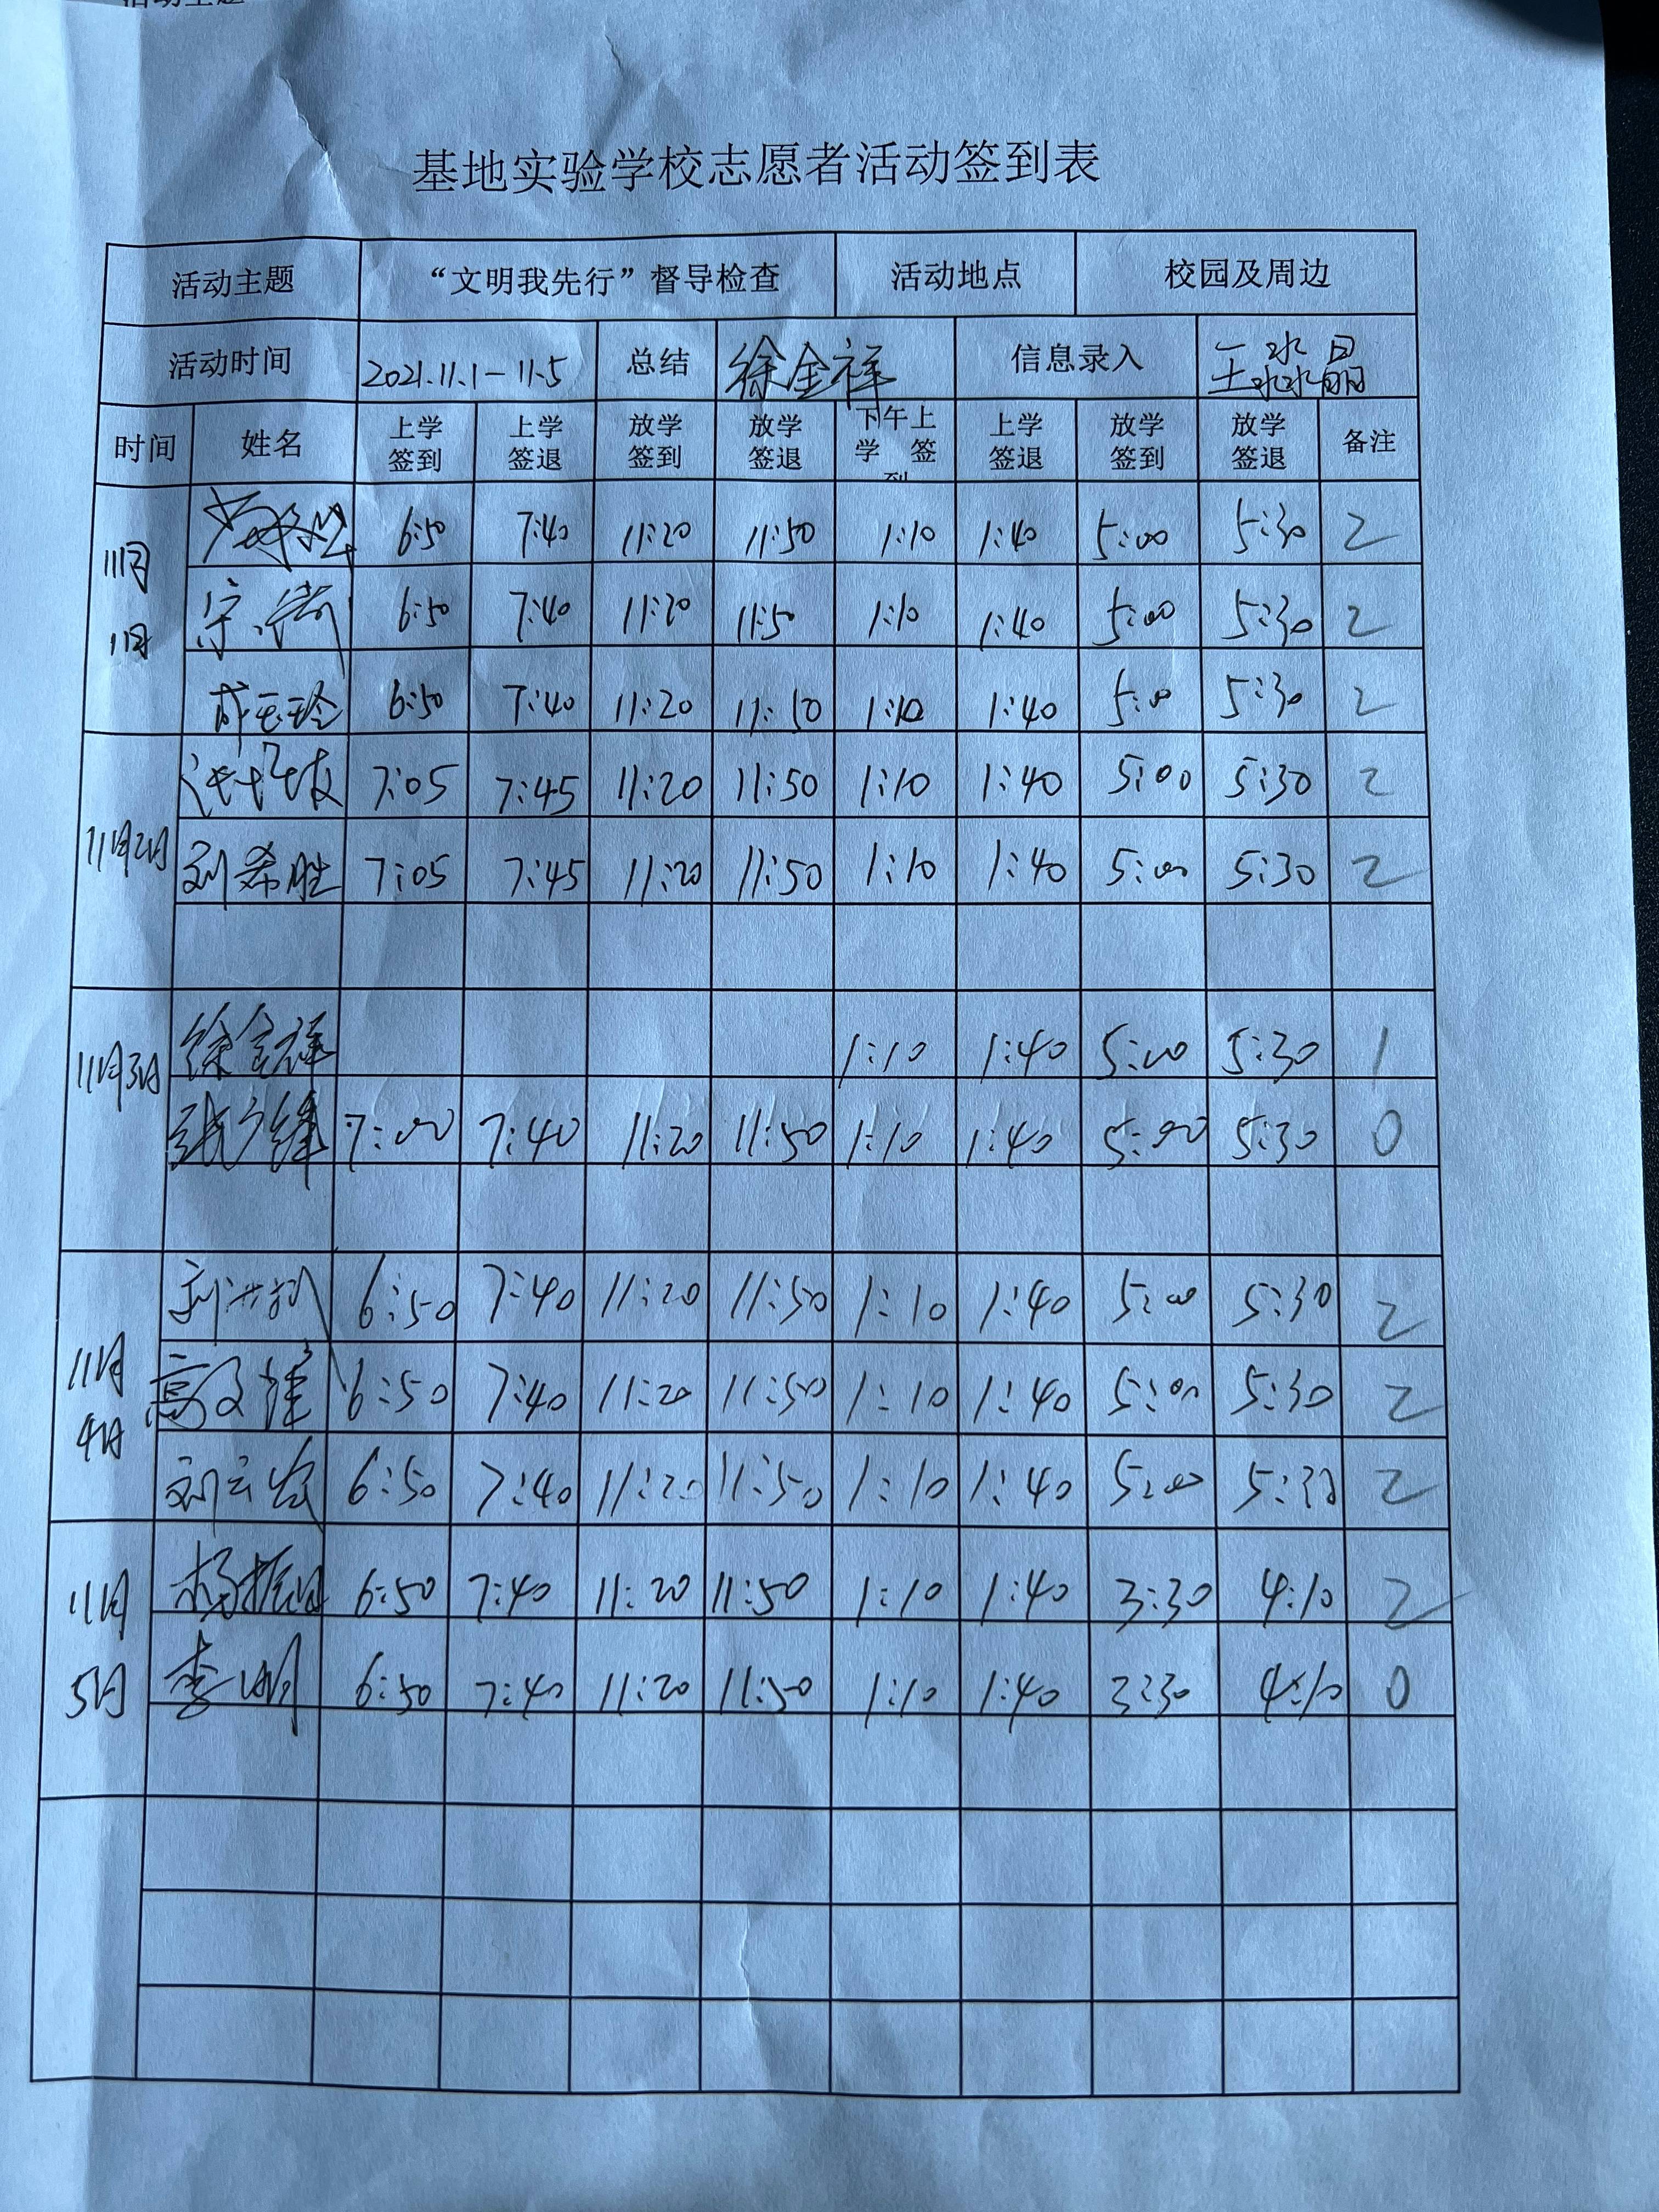 活动主题
基地实验学校志愿者活动签到表
活动主题 “文明我先行”督导检查 活动地点 校园及周边
活动时间 2021.11.1-11.5 总结 徐金祥 信息录入 王淼晶
时间 姓名 上学签到 上学签退 放学签到 放学签退 下午上学签到 上学签退 放学签到 放学签退 备注
11月1日 6:50 7:40 11:20 11:50 1:10 1:40 5:00 5:30 2
6:50 7:40 11:20 11:50 1:10 1:40 5:00 5:30 2
成玉玲 6:50 7:40 11:20 11:50 1:10 1:40 5:00 5:30 2
11月2日 7:05 7:45 11:20 11:50 1:10 1:40 5:00 5:30 2
刘希胜 7:05 7:45 11:20 11:50 1:10 1:40 5:00 5:30 2
11月3日 徐金祥 1:10 1:40 5:00 5:30 1
7:00 7:40 11:20 11:50 1:10 1:40 5:00 5:30 0
11月4日 6:50 7:40 11:20 11:50 1:10 1:40 5:00 5:30 2
高文 6:50 7:40 11:20 11:50 1:10 1:40 5:00 5:30 2
刘云 6:50 7:40 11:20 11:50 1:10 1:40 5:00 5:30 2
11月5日 杨振 6:50 7:40 11:20 11:50 1:10 1:40 3:30 4:10 2
李明 6:50 7:40 11:20 11:50 1:10 1:40 3:30 4:10 0